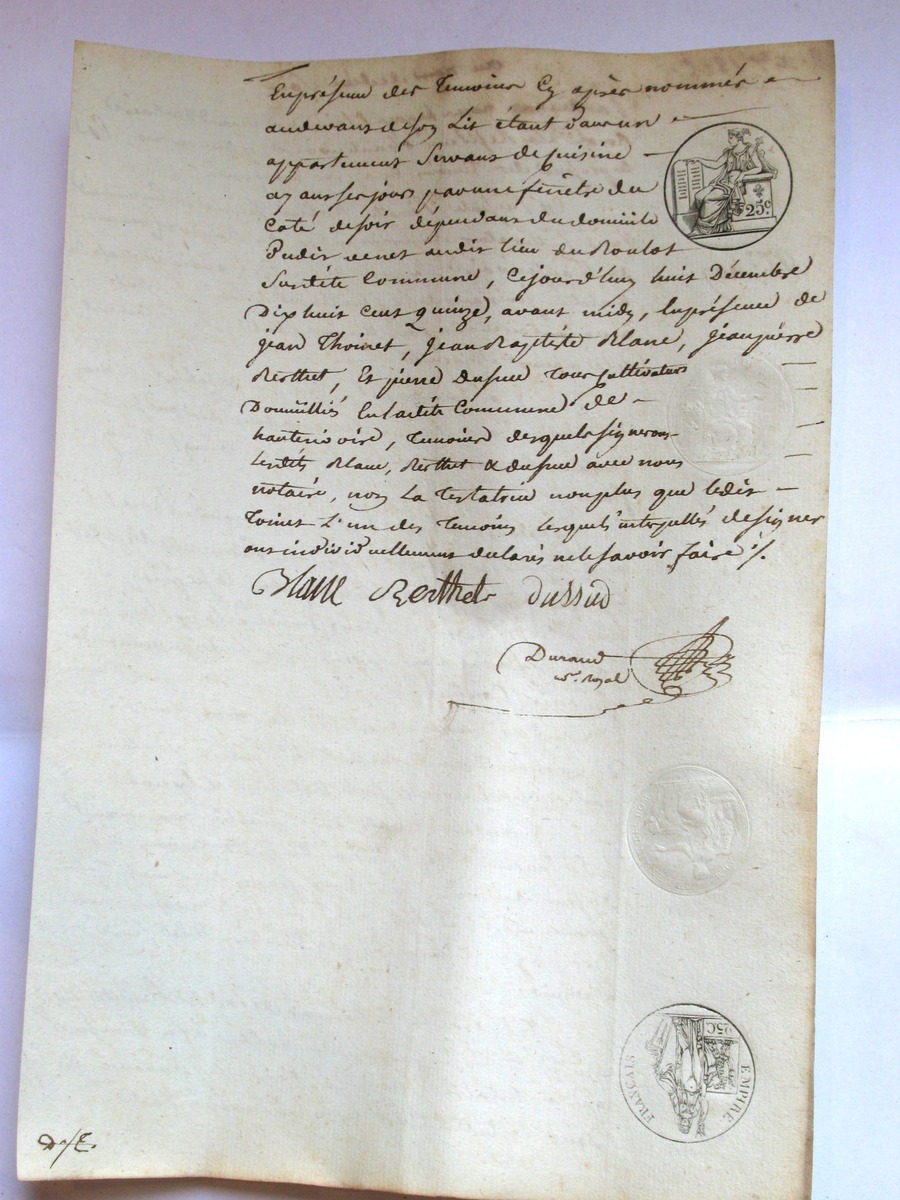 En présence des temoins cy après nommés
au devant de son lit étant dans un
appartement servant de cuisine
ay ans ses jours par une fenêtre du
coté de soir dépendant du domicile
dudit venet audit lieu du Roulot
Susdite Commune, Cejourd'huy huit Décembre
Dix huit cent quinze, avant midy, En présence de
jean Thoinet, jean Baptiste Blanc, jean pierre
Berthet, Et pierre dussud tous cultivateurs
Domiciliés En ladite Commune de
hauterivoire, temoins desquels signeront
Lesdits Blanc, Berthet & dussud avec nous
notaire, non La testatrice non plus que ledit
Toinet L'un des temoins lesquels interpellés de signer
ont individuellement declarés ne le savoir faire ./.
25c.
Blanc Berthet dussud
Durand
nre. royal
EMPIRE FRANÇAIS
25C